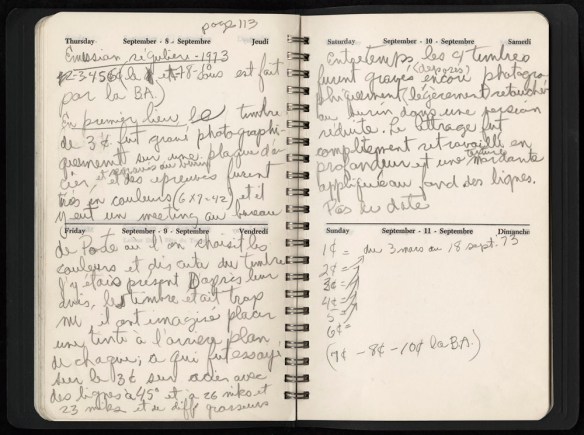 page 113
Thursday September - 8 - Septembre Jeudi
Emission régulière - 1973
1-2-3-4-5-6 (la 7 et 8-10 sous est fait
par la B.A.)
En premier lieu le timbre
de 3¢ fut gravé photographi-
quement sur une plaque d'a-
cier, et regravé au burin
et des épreuves furent
tirés en couleurs (6 X 7 = 42) et il
y eut un meeting au bureau
Friday September - 9 - Septembre Vendredi
de Poste où l'on choisit les
couleurs et discuta du timbre
j'y étais présent D'après leur
avis, le timbre était trop
nu il ont imaginé placer
une tinte à l'arrière plan
de chaque; ce qui fut essayé
sur le 3¢ sur acier avec
des lignes à 45° et à
23 et de diff grosseurs
Saturday September - 10 - Septembre Samedi
Entretemps, les 4 timbres
furent gravés encore photogra-
(déposés)
phiquement (légèrement retouchés
au burin dans une version
réduite. Le lettrage fut
complètement retravaillé en
profondeur et une mordante
texture
appliquée au fond des lignes.
Pas de date
Sunday September - 11 - Septembre Dimanche
1¢ = du 3 mars au 18 sept. 73
2¢ =
3¢ =
4¢ =
5 =
6¢ =
(7¢ - 8¢ - 10¢ la B.A.)